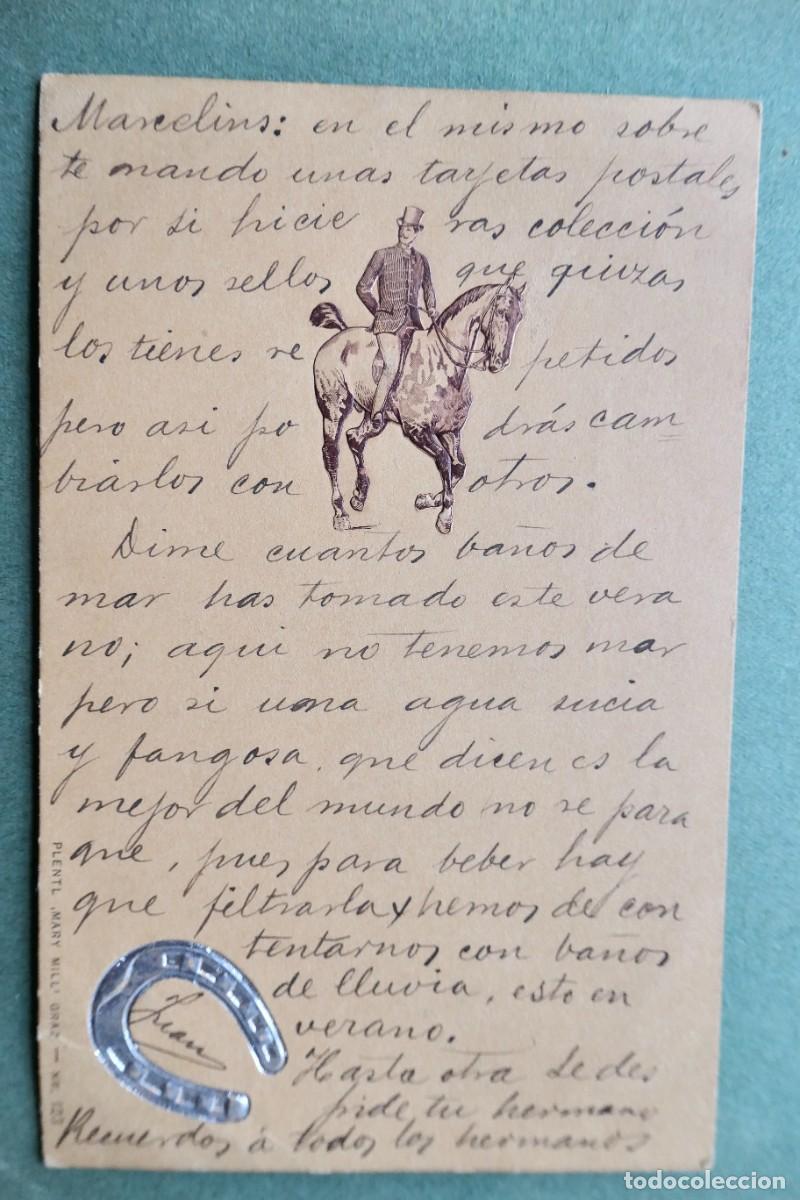 Marcelins: en el mismo sobre
te mando unas tarjetas postales
por si hicie ras colección
y unos sellos que quizas
los tienes re petidos
pero asi po drás cam
biarlos con otros.
Dime cuantos baños de
mar has tomado este vera
no; aqui no tenemos mar
pero si una agua sucia
y fangosa, que dicen es la
mejor del mundo no se para
que, pues para beber hay
que filtrarla y hemos de con
tentarnos con baños
de lluvia, esto en
verano.
Juan
Hasta otra se des
pide tu hermano
Recuerdos á todos los hermanos
PLENTL „MARY MILL" GRAZ — NR. 123
todocoleccion